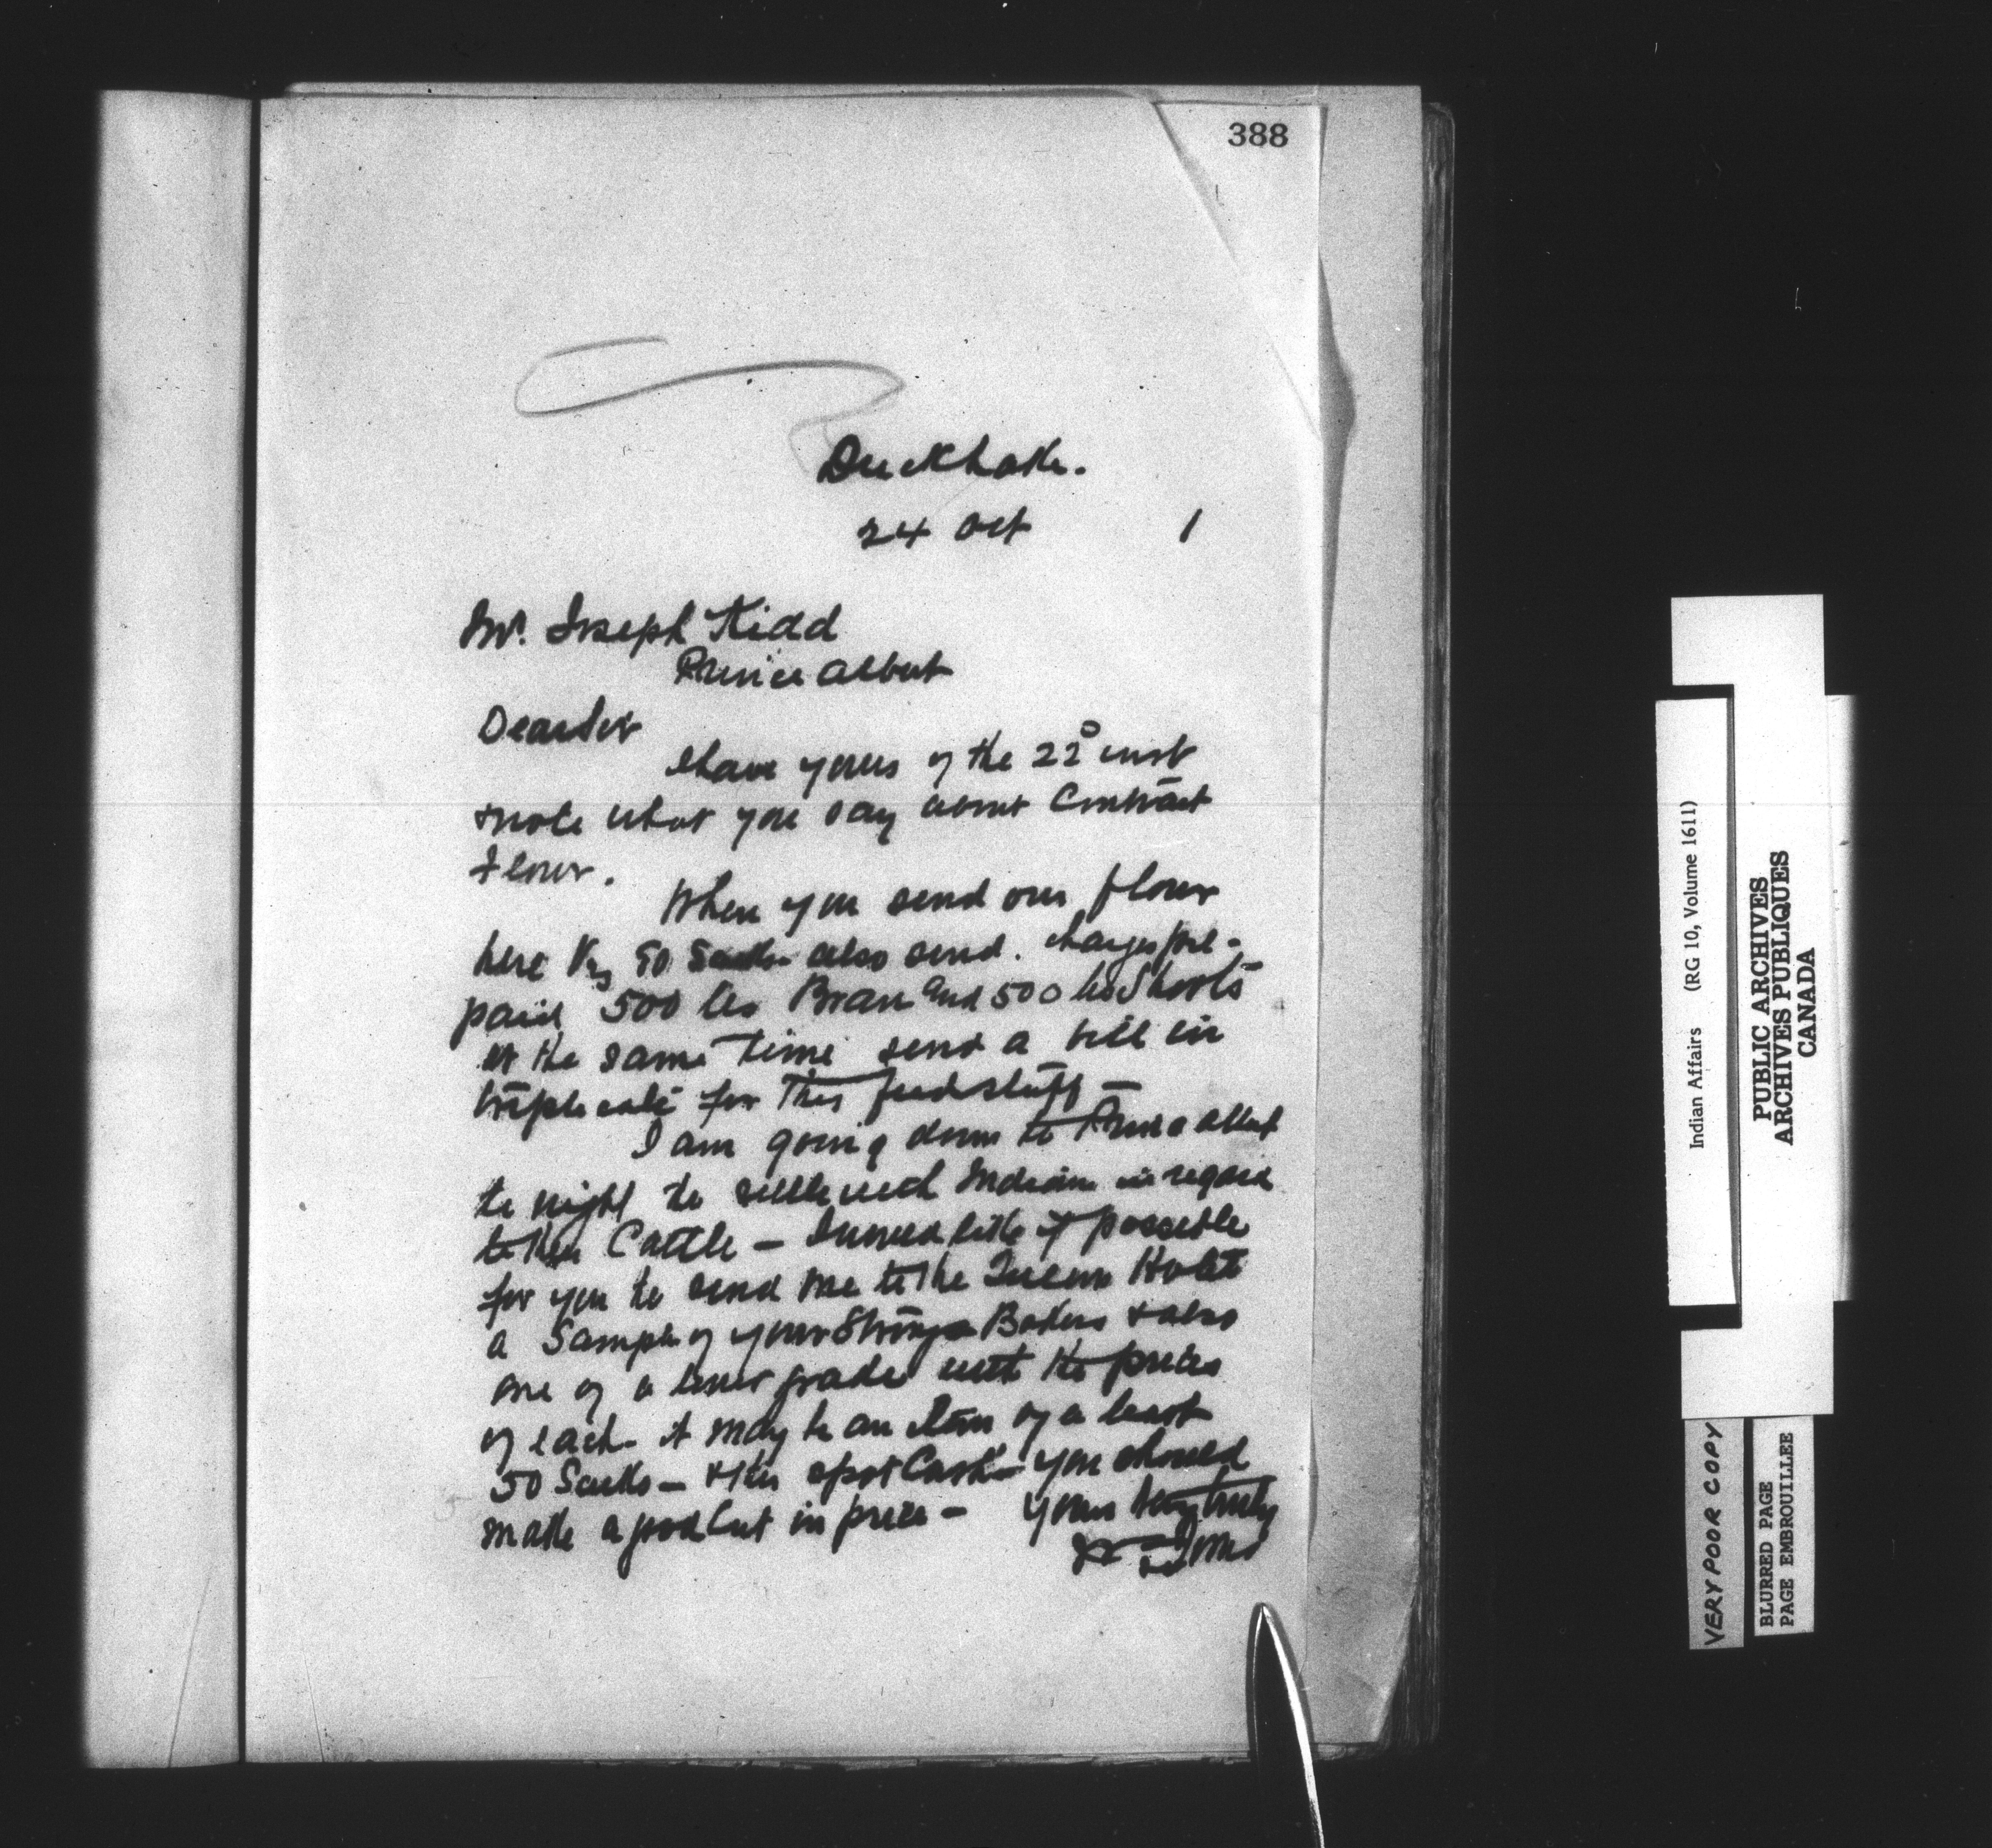 388
Duck Lake.
24 Oct 1
Mr. Joseph Kidd
Prince Albert
Dear Sir
I have yours of the 22d inst
& note what you say about Contract
Flour.
When you send our flour
here 50 Sacks also send. charges pre-
paid 500 lbs Bran and 500 lbs Shorts
at the same time send a bill in
triplicate for this feed stuff –
I am going down to Prince Albert
to night to settle with Indians in regard
to their Cattle – I would like if possible
for you to send me to the Queens Hotel
a Sample of your Strong Bakers & also
one of a lower grade with the prices
of each – it may be an item of a least
50 Sacks – & this spot Cash – you should
make a good Cut in price – Yours very truly
Jones
Indian Affairs (RG 10, Volume 1611)
PUBLIC ARCHIVES
ARCHIVES PUBLIQUES
CANADA
VERY POOR COPY
BLURRED PAGE
PAGE EMBROUILLEE